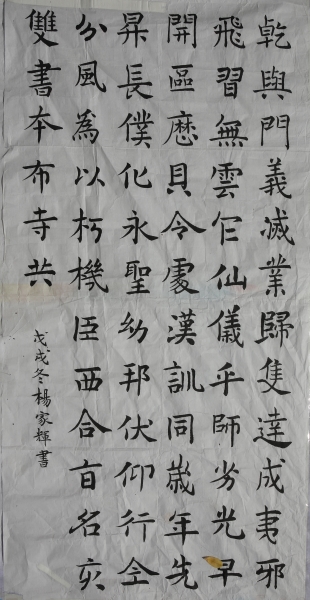 乾與門義滅業歸隻達成夷邪
飛習無雲仙儀乎師劣光早
開區歷貝令處漢訓同歲年先
昇長僕化永聖幼邦伏仰行全
分風為以朽機臣西合百名亥
雙書本布寺共
戊戌冬楊家輝書